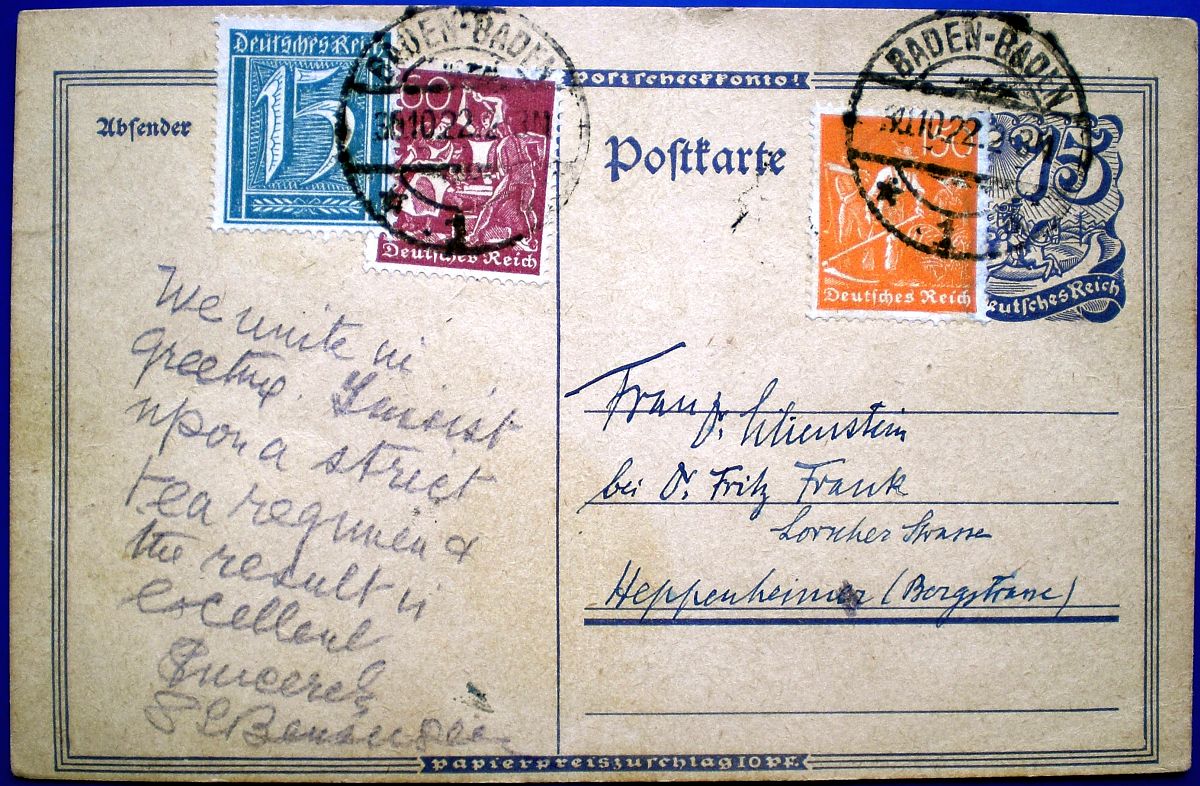 Deutsches Reich
15
60
Deutsches Reich
BADEN-BADEN
30.10.22.2
1
Postscheckkonto!
Absender
Postkarte
BADEN-BADEN
30.10.22.2-3N
1
150
Deutsches Reich
75
Deutsches Reich
We unite in
greeting. I insist
upon a strict
tea regimen &
the result is
excellent
Sincerely
Frau Dr. Lilienstein
bei Dr. Fritz Frank
Lorscher Strasse
Heppenheimer (Bergstrasse)
Papierpreiszuschlag 10 PF.